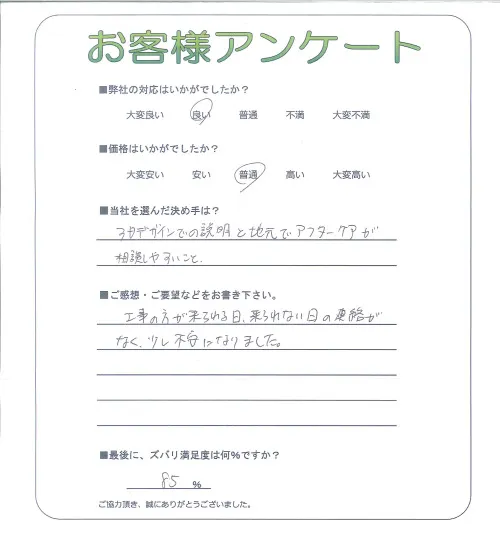 お客様アンケート
■弊社の対応はいかがでしたか？
大変良い 良い 普通 不満 大変不満
■価格はいかがでしたか？
大変安い 安い 普通 高い 大変高い
■当社を選んだ決め手は？
デザインでの説明と地元でアフターケアが
相談しやすいこと.
■ご感想・ご要望などをお書き下さい。
工事の方が来られる日、来られない日の連絡が
なく、少し不安になりました。
■最後に、ズバリ満足度は何%ですか？
85 %
ご協力頂き、誠にありがとうございました。